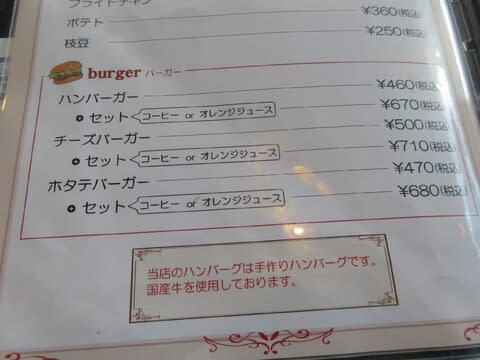 フライドチキン
ポテト ¥360(税込)
枝豆 ¥250(税込)
burger バーガー
ハンバーガー ¥460(税込)
セット コーヒー or オレンジジュース ¥670(税込)
チーズバーガー ¥500(税込)
セット コーヒー or オレンジジュース ¥710(税込)
ホタテバーガー ¥470(税込)
セット コーヒー or オレンジジュース ¥680(税込)
当店のハンバーグは手作りハンバーグです。
国産牛を使用しております。